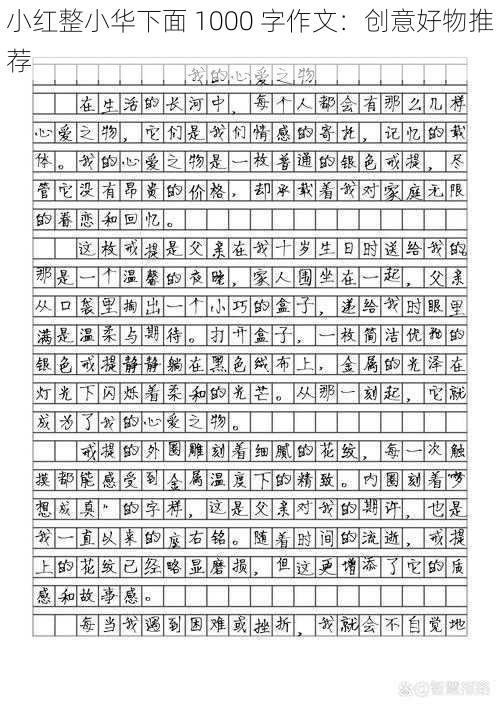 小红整小华下面 1000 字作文：创意好物推
荐
我的心爱之物
在生活的长河中，每个人都会有那么几样
心爱之物，它们是我们情感的寄托，记忆的载
体。我的心爱之物是一枚普通的银色戒提，尽
管它没有昂贵的价格，却承载着我对家庭无限
的眷恋和回忆。
这枚戒提是父亲在我十岁生日时送给我的
那是一个温馨的夜晚，家人围坐在一起，父亲
从口袋里掏出一个小巧的盒子，递给我时眼里
满是温柔与期待。打开盒子，一枚简洁优雅的
银色戒提静静躺在黑色绒布上，金属的光泽在
灯光下闪烁着柔和的光芒。从那一刻起，它就
成为了我的心爱之物。
戒提的外圈雕刻着细腻的花纹，每一次触
摸都能感受到金属温度下的精致。内圈刻着“梦
想成真”的字样，这是父亲对我的期许，也是
我一直以来的座右铭。随着时间的流逝，戒提
上的花纹已经略显磨损，但这更增添了它的质
感和故事感。
每当我遇到困难或挫折，我就会不自觉地
@智慧报路